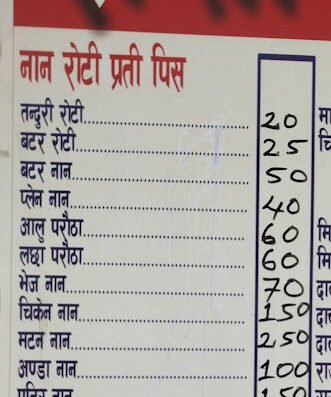 नान रोटी प्रती पिस
तन्दुरी रोटी 20
बटर रोटी 25
बटर नान 50
प्लेन नान 40
आलु परौठा 60
लछा परौठा 60
भेज नान 70
चिकेन नान 150
मटन नान 250
अण्डा नान 100
पनिर नान 150